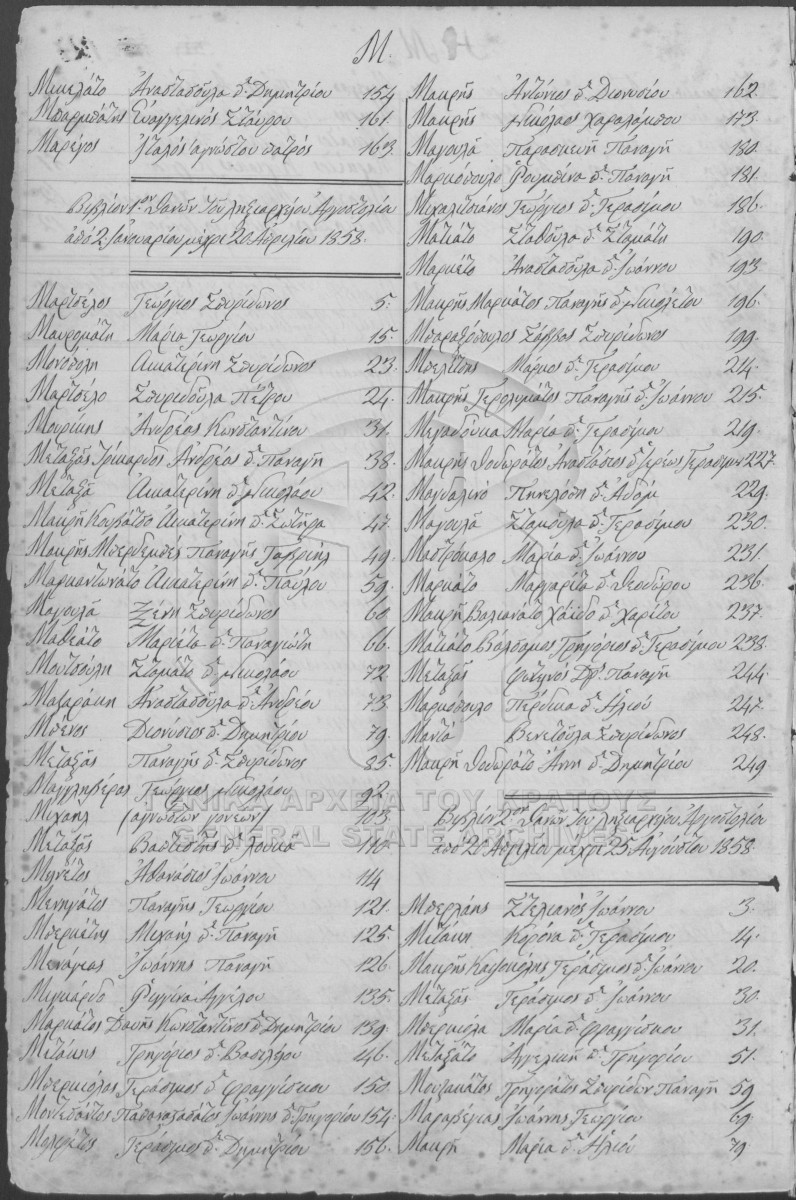 Μ.
Μικελάτο Ἀναστασούλα δ. Δημητρίου 154
Μπαρμπάτης Εὐαγγελινός Σταύρου 161.
Μαρέγος Ἰταλός ἀγνώστου πατρός 163.
Βιβλίον 1ον Θανῶν τοῦ ληξιαρχείου Ἀργοστολίου
ἀπό 2 Ἰανουαρίου μέχρι 20 Ἀπριλίου 1858.
Μαρτσέλος Γεώργιος Σπυρίδωνος 5.
Μαυρομάτη Μαρία Γεωργίου 15.
Μονοπολη Αικατερίνη Σπυρίδωνος 23.
Μαρτσέλο Σπυριδούλα Πέτρου 24.
Μουρίκης Ἀνδρέας Κωνσταντίνου 31.
Μεταξᾶς Τρίκαρδος Ἀνδρέας δ. Παναγῆ 38.
Μεταξᾶ Αικατερίνη δ. Νικολάου 42.
Μακρῆ Αικατερίνη δ. Σωτήρα 47.
Μακρῆς Παναγῆς Γαβριήλ 49.
Μαρκαντωνάτο Αικατερίνη δ. Παύλου 59.
Μαγουλᾶ Ξένη Σπυρίδωνος 60
Μαθεάτο Μαριέτα δ. Παναγιώτη 66.
Μουτσούλη Σταμάτο δ. Νικολάου 72
Μαζαράκη Ἀναστασούλα δ. Ἀνδρέου 73
Μπένος Διονύσιος δ. Δημητρίου 79.
Μεταξᾶς Παναγῆς δ. Σπυρίδωνος 85.
Μαγγλαβέρας Γεώργιος Νικολάου 92.
Μιχαήλ (αγνώστων γονέων) 103
Μεταξᾶς Βαπτιστής δ. Λουκα 110.
Μηνέτος Ἀθανάσιος Ἰωάννου 114
Μενηγάτος Παναγῆς Γεωργίου 121.
Μπερκέτης Μιχαήλ δ. Παναγῆ 125.
Μενάγιας Ἰωάννης Παναγῆ 126.
Μικιάρδο Ρεγγίνα Ἀγγέλου 135.
Μαρκάτος Δαυῆς Κωνσταντῖνος δ. Δημητρίου 139.
Μεϊτάνης Γρηγόριος δ. Βασιλείου 146.
Μπερκιόλας Γεράσιμος δ. Φραγγίσκου 150.
Ἰωάννης δ. Γρηγορίου 154.
Μολφέτας Γεράσιμος δ. Δημητρίου 156.
Μακρῆς Ἀντώνιος δ. Διονυσίου 162
Μακρῆς Νικόλαος Χαραλάμπου 173.
Μαγουλᾶ Παρασκευή Παναγῆ 180.
Μαρκόπουλο Ρουμπίνα δ. Παναγῆ 181.
Μιχαλιτσιάνος Γεώργιος δ. Γερασίμου 186.
Ματιάτο Σταθούλα δ. Σταμάτη 190.
Μαρκέτο Ἀναστασούλα δ. Ἰωάννου 193
Μακρῆς Μαρκάτος Παναγῆς δ. Νικολέτου 196.
Μπαραζόπουλος Σάββας Σπυρίδωνος 199.
Μπελίτσης Μάρκος δ. Γερασίμου 214.
Μακρῆς Γερολιμάτος Παναγῆς δ. Ἰωάννου 215.
Μεγαδούκα Μαρία δ. Γερασίμου 219.
Μακρῆς Θοδωράτος Ἀναστάσιος δ. Ἱερέως Γερασίμου 227.
Μαγδαλινό Πηνελόπη δ. Ἀδάμ 229.
Μαγουλᾶ Σταμούλα δ. Γερασίμου 230.
Μαστρόκαλο Μαρία δ. Ἰωάννου 231.
Μαρκάτο Μαργαρίτα δ. Θεοδώρου 236.
Μακρῆ Βαλιανάτο Χάϊδο δ. Χαρίτου 237.
Ματιάτο Βάλσαμος Γρηγόριος δ. Γερασίμου 238.
Μεταξᾶς Φωτηνός δ. Παναγῆ 244.
Μαρκόπουλο Πέρδικα δ. Ἀλιού 247.
Μαντά Βενετούλα Σπυρίδωνος 248.
Μακρῆ Θοδωράτο Ἄννη δ. Δημητρίου 249
Βιβλίον 2ον Θανῶν τοῦ ληξιαρχείου Ἀργοστολίου
ἀπό 21 Ἀπριλίου μέχρι 25 Αὐγούστου 1858.
Μπερλάης Στελιανός Ἰωάννου 3.
Μιτάκη Κορόνα δ. Γερασίμου 14.
Μακρῆς Γεράσιμος δ. Ἰωάννου 20.
Μεταξᾶς Γεράσιμος δ. Ἰωάννου 30.
Μπερκιόλα Μαρία δ. Φραγγίσκου 31.
Μεταξᾶτο Ἀγγελική δ. Γρηγορίου 51.
Μουζακάτος Γρηγοράτος Σπυρίδων Παναγῆ 59
Μαραβέγιας Ἰωάννης Γεωργίου 69.
Μακρῆ Μαρία δ. Ἀλιού 79
ΓΕΝΙΚΑ ΑΡΧΕΙΑ ΤΟΥ ΚΡΑΤΟΥΣ
GENERAL STATE ARCHIVES